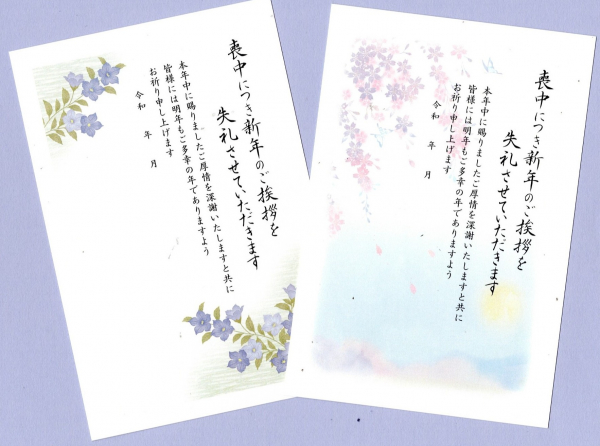 喪中につき新年のご挨拶を
失礼させていただきます
本年中に賜りましたご厚情を深謝いたしますと共に
皆様には明年もご多幸の年でありますよう
お祈り申し上げます
令和　年　月
喪中につき新年のご挨拶を
失礼させていただきます
本年中に賜りましたご厚情を深謝いたしますと共に
皆様には明年もご多幸の年でありますよう
お祈り申し上げます
令和　年　月